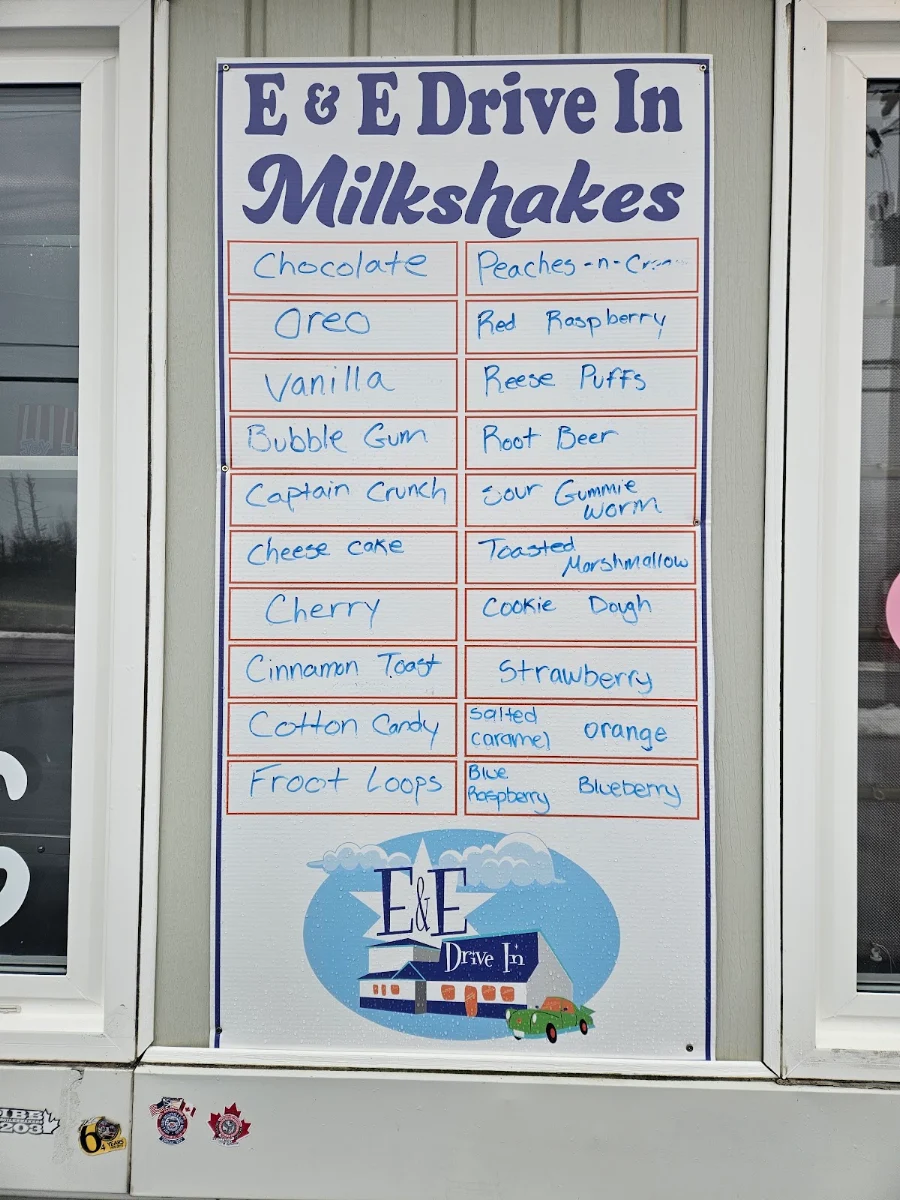 E & E Drive In
Milkshakes
Chocolate
Oreo
Vanilla
Bubble Gum
Captain Crunch
Cheese cake
Cherry
Cinnamon Toast
Cotton Candy
Froot Loops
Peaches-n-
Red Raspberry
Reese Puffs
Root Beer
Sour Gummie
worm
Toasted
Marshmallow
Cookie Dough
Strawberry
Salted
caramel
orange
Blue
Raspberry
Blueberry
E&E
Drive In
IBB
203
6